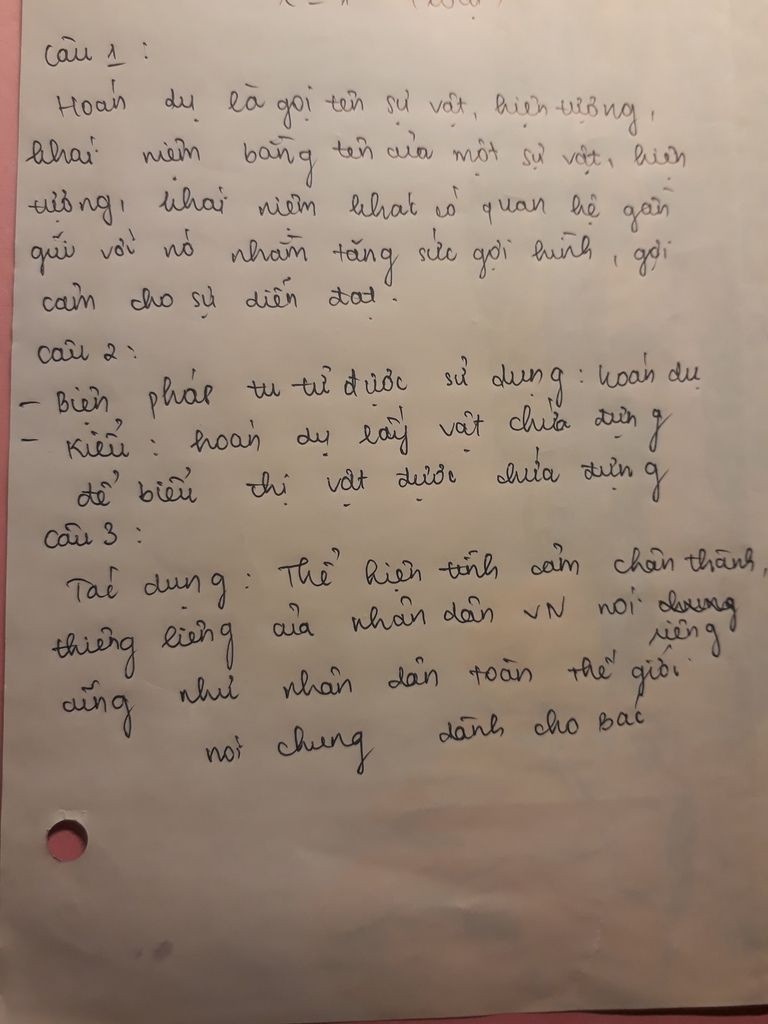 Câu 1 :
Hoán dụ là gọi tên sự vật, hiện tượng,
khái niệm bằng tên của một sự vật, hiện
tượng, khái niệm khác có quan hệ gần
gũi với nó nhằm tăng sức gợi hình, gợi
cảm cho sự diễn đạt.
Câu 2 :
- Biện pháp tu từ được sử dụng : hoán dụ
- Kiểu : hoán dụ lấy vật chứa đựng
để biểu thị vật được chứa đựng
Câu 3 :
Tác dụng : Thể hiện tình cảm chân thành,
thiêng liêng của nhân dân VN nói chung
riêng
cũng như nhân dân toàn thế giới
nói chung dành cho Bác